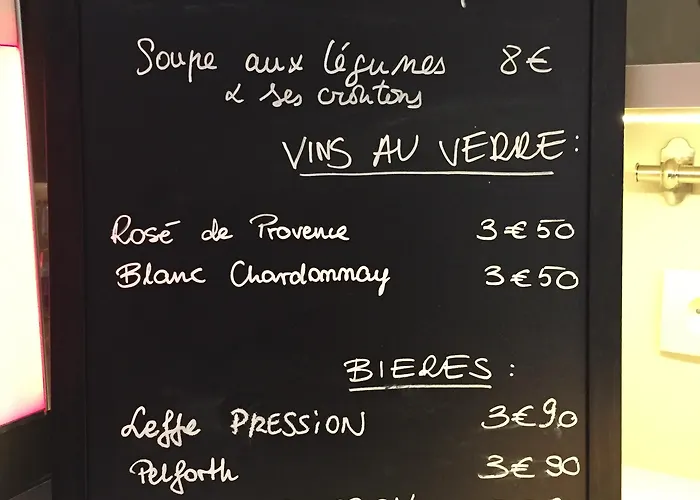 Soupe aux légumes 8€
& ses croûtons
VINS AU VERRE :
Rosé de Provence 3€50
Blanc Chardonnay 3€50
BIERES :
Leffe PRESSION 3€90
Pelforth 3€90